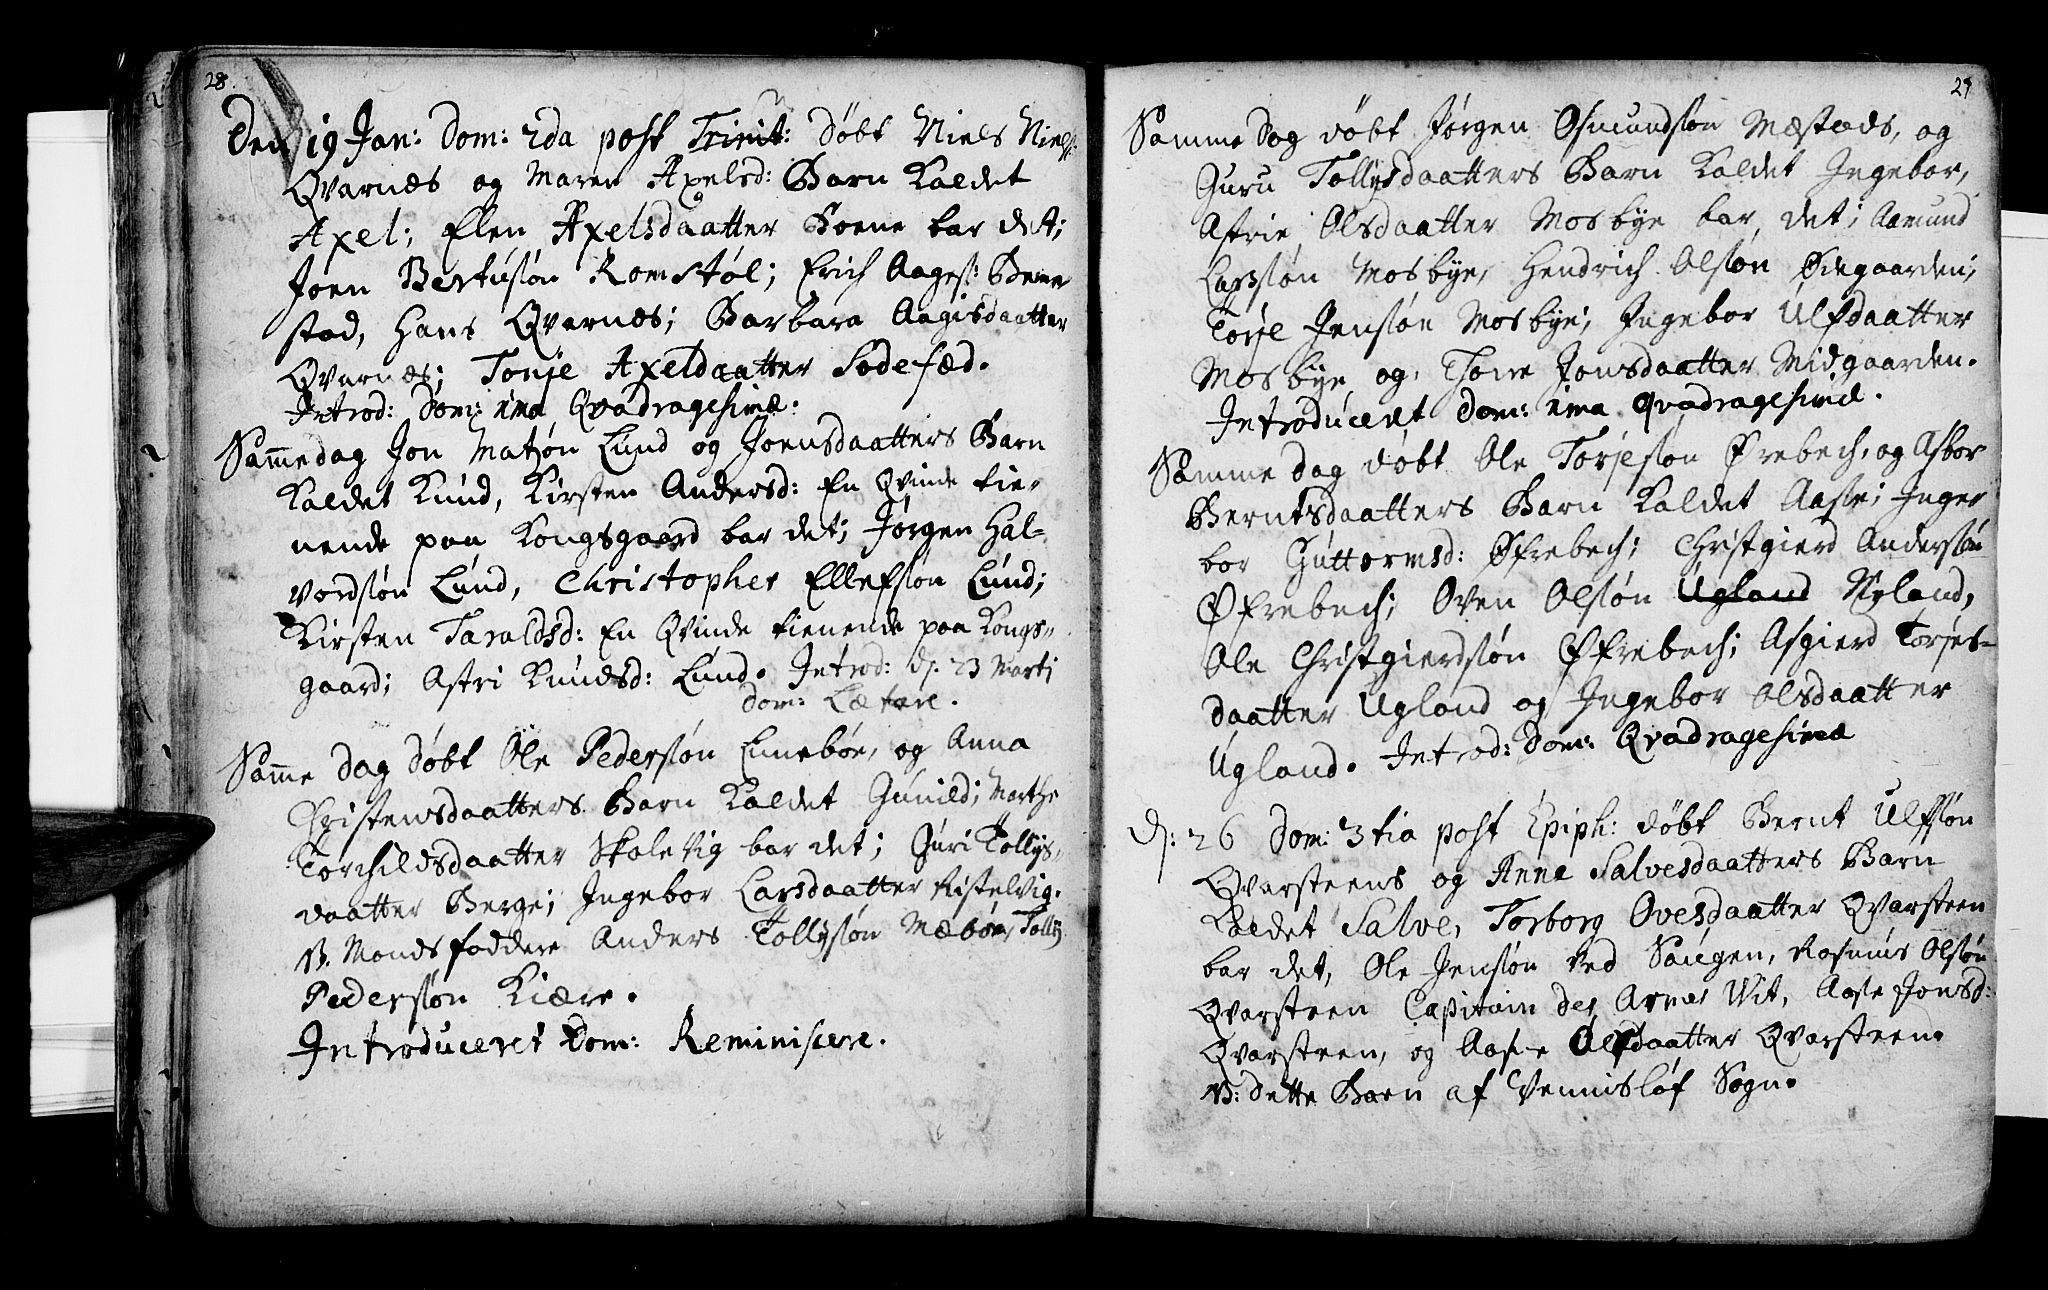 28.
Den 19 Jan: Dom: 2da post Trinit: døbt Niels Niels:
Qvarnæs og Maren Axelsd: Barn Kaldet
Axel; Elen Axelsdaatter Boene bar det;
Joen Bertusøn Romstøl; Erich Aages:
stad, Hans Qvarnæs; Barbara Aagisdaatter
Qvarnæs; Tonje Axeldaatter Sodefæd.
Introd: Dom: 1ma Qvadragesimæ.
Samme dag Jon Matsøn Lund og Joensdaatters Barn
Kaldet Knud, Kirsten Andersd: En Qvinde tie-
nende paa Kongsgaard bar det; Jørgen Hal-
vordsøn Lund, Christopher Ellefsøn Lund;
Kirsten Taraldsd: En Qvinde tienende paa Kongs-
gaard; Astri Knudsd: Lund. Introd: d. 23 Marti
Dom: Lætare.
Samme dag døbt Ole Pedersøn Linebøe, og Anna
Christensdaatters Barn Kaldet Gunild; Marthe
Torchildsdaatter Skolevig bar det; Guri Tollys-
daatter Berge; Ingebor Larsdaatter Ristelvig.
N. Mandsfaddere Anders Tollysøn Mæbøe, Tolly
Pedersøn Kiære.
Introduceret Dom: Reminiscere.
29
Samme dag døbt Jørgen Osmundsøn Mæstads, og
Guru Tollysdaatters Barn Kaldet Ingebor,
Astrie Olsdaatter Mosbye bar det; Aamund
Larsøn Mosbye, Hendrich Olsøn Ødegaarden;
Torje Jensøn Mosbye; Ingebor Ulfdaatter
Mosbye og Thore Jonsdaatter Midgaarden.
Introduceret Dom: 1ma Qvadragesimæ.
Samme dag døbt Ole Torjesøn Øfrebech, og Asbor
Berntsdaatters Barn Kaldet Aasse; Inger
bor Guttormsd: Øfrebech; Christgierd Andersøn
Øfrebech; Oven Olsøn Ugland Nyland,
Ole Christgierdsøn Øfrebech; Asgierd Torjes-
daatter Ugland og Ingebor Olsdaatter
Ugland. Introd: Dom: Qvadragesimæ
d: 26 Dom: 3tia post Epiph: døbt Bernt Ulfsøn
Qvarsteens og Anne Salvesdaatters Barn
Kaldet Salve, Torborg Ovesdaatter Qvarsteen
bar det, Ole Jensøn ved Saugen, Rasmus Olsøn
Qvarsteen Capitain des Armes Wit, Aase Jonsd:
Qvarsteen, og Aase Olsdaatter Qvarsteen.
N: dette Barn af Vennisløf Sogn.